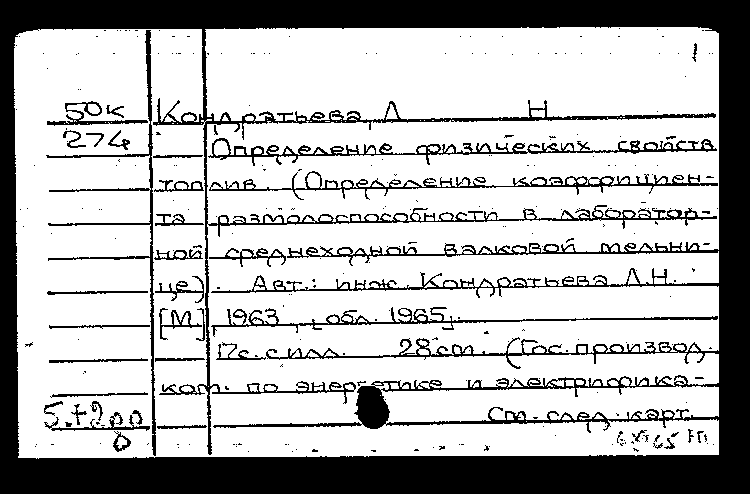 1
50к Кондратьева, Л Н
274 Определение физических свойств
топлив (Определение коэффициен-
та размолоспособности в лаборатор-
ной среднеходной валковой мельни-
це). Авт.: инж. Кондратьева Л.Н.
[М.], 1963, [обл. 1965].
17с. с илл. 28 см. (Гос. производ.
ком. по энергетике и электрифика-
См. след. карт.